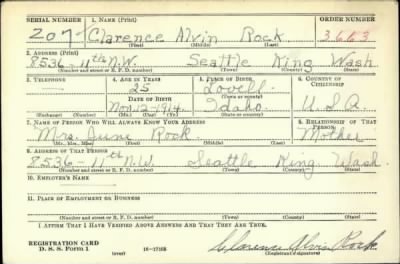 SERIAL NUMBER 1. NAME (Print) ORDER NUMBER
207 Clarence Alvin Rock 3663
(First) (Middle) (Last)
2. ADDRESS (Print)
8536-11th N.W. Seattle King Wash
(Number and street or R. F. D. number) (Town) (County) (State)
3. TELEPHONE 4. AGE IN YEARS 5. PLACE OF BIRTH 6. COUNTRY OF CITIZENSHIP
25 Lovell
DATE OF BIRTH (Town or county)
Nov. 12-1914 Idaho U.S.A.
(Exchange) (Number) (Mo.) (Day) (Yr.) (State or country)
7. NAME OF PERSON WHO WILL ALWAYS KNOW YOUR ADDRESS 8. RELATIONSHIP OF THAT PERSON
Mrs. June Rock Mother
(Mr., Mrs., Miss) (First) (Middle) (Last)
9. ADDRESS OF THAT PERSON
8536-11th N.W. Seattle King Wash.
(Number and street or R. F. D. number) (Town) (County) (State)
10. EMPLOYER'S NAME
11. PLACE OF EMPLOYMENT OR BUSINESS
(Number and street or R. F. D. number) (Town) (County) (State)
I AFFIRM THAT I HAVE VERIFIED ABOVE ANSWERS AND THAT THEY ARE TRUE.
REGISTRATION CARD
D. S. S. Form 1 (over) 16-17105 Clarence Alvin Rock
(Registrant's signature)